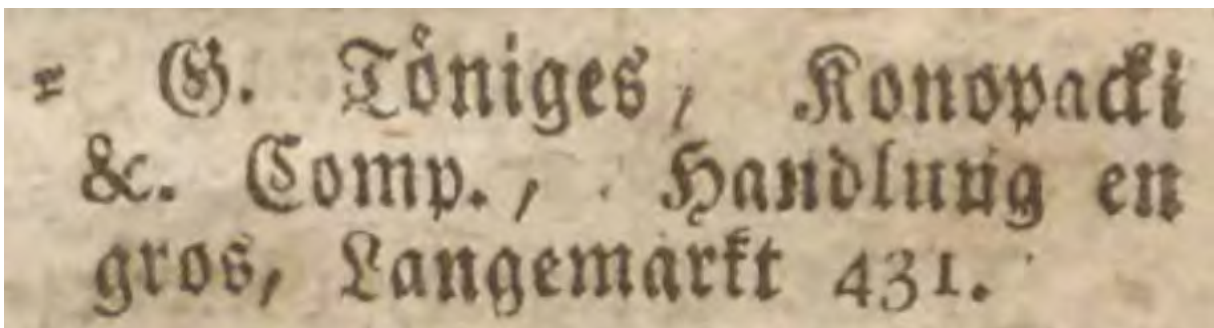 = G. Töniges, Konopacki
&c. Comp., Handlung en
gros, Langemarkt 431.